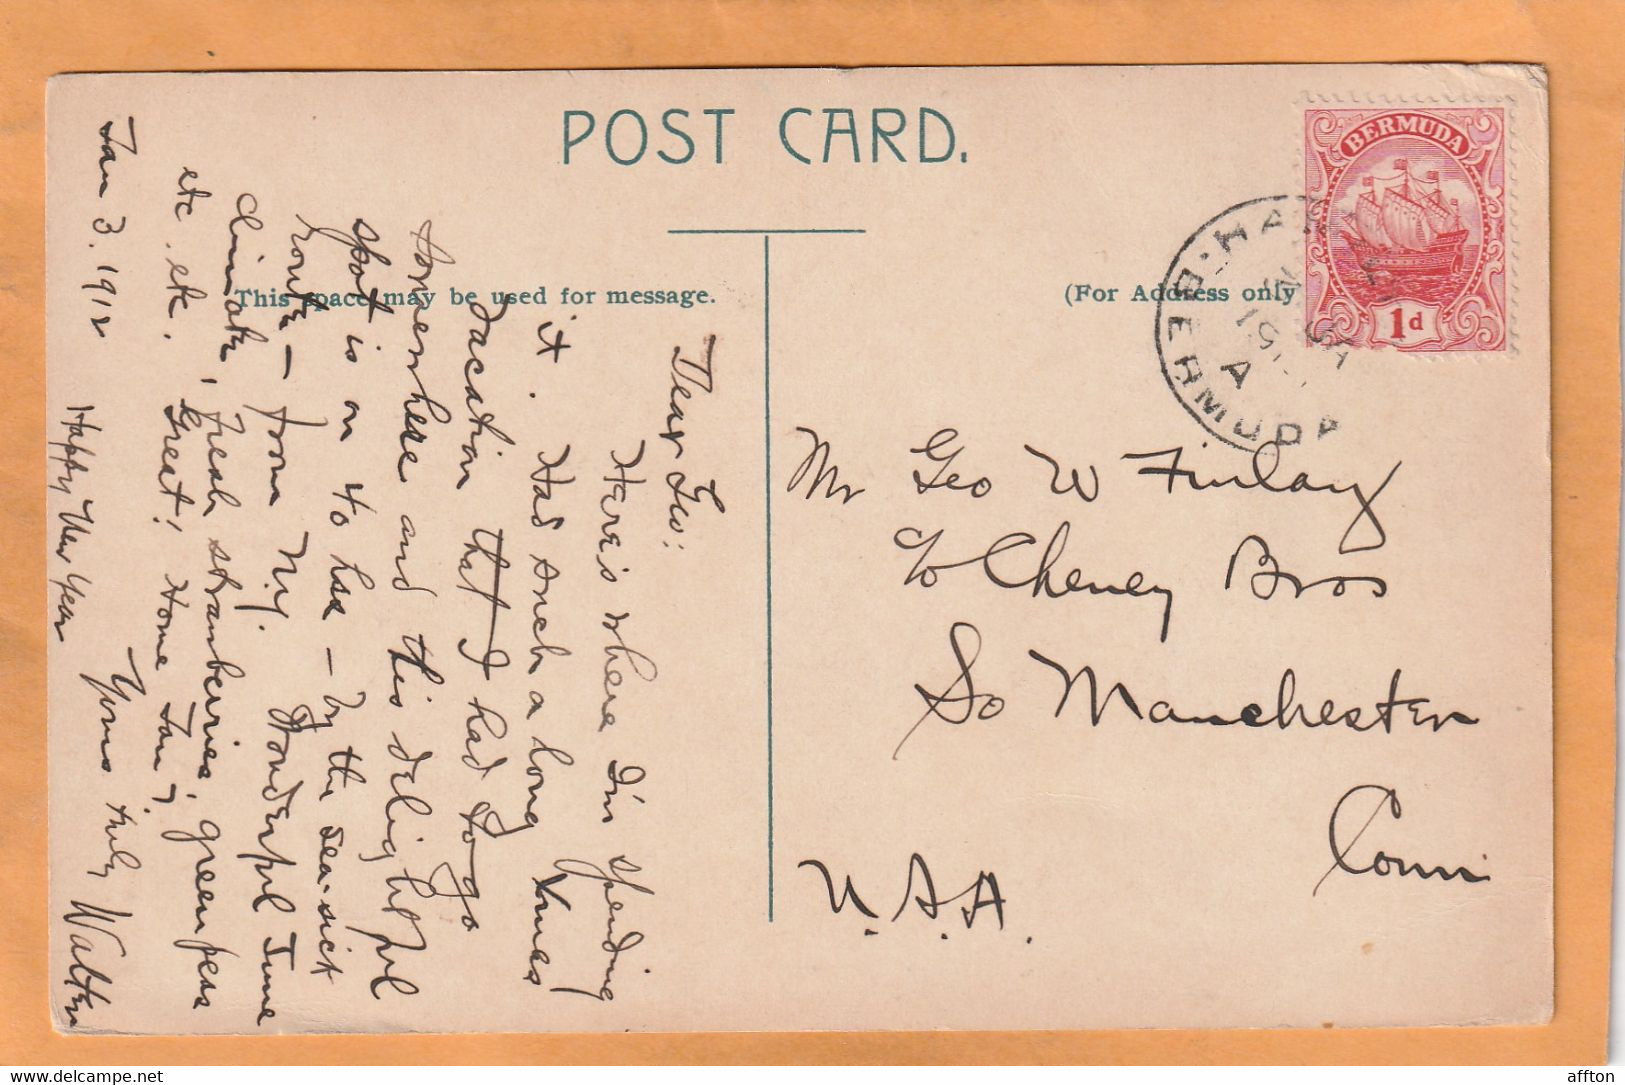 POST CARD.
This space may be used for message.
(For Address only
BERMUDA
1d
BERMUDA
A
Jan 3. 1912
Dear Geo:
Here's where I'm spending
it. Had such a long Xmas
vacation that I had to go
somewhere and this delightful
spot is on 40 hrs - by the sea-sick
route - from N.Y. Wonderful June
climate, fresh strawberries, green peas
etc. etc. Great! Home Jan 9
Yours truly Walter
Happy New Year
Mr Geo W Finlay
c/o Cheney Bros
So Manchester
Conn
U.S.A.
delcampe.net
affton